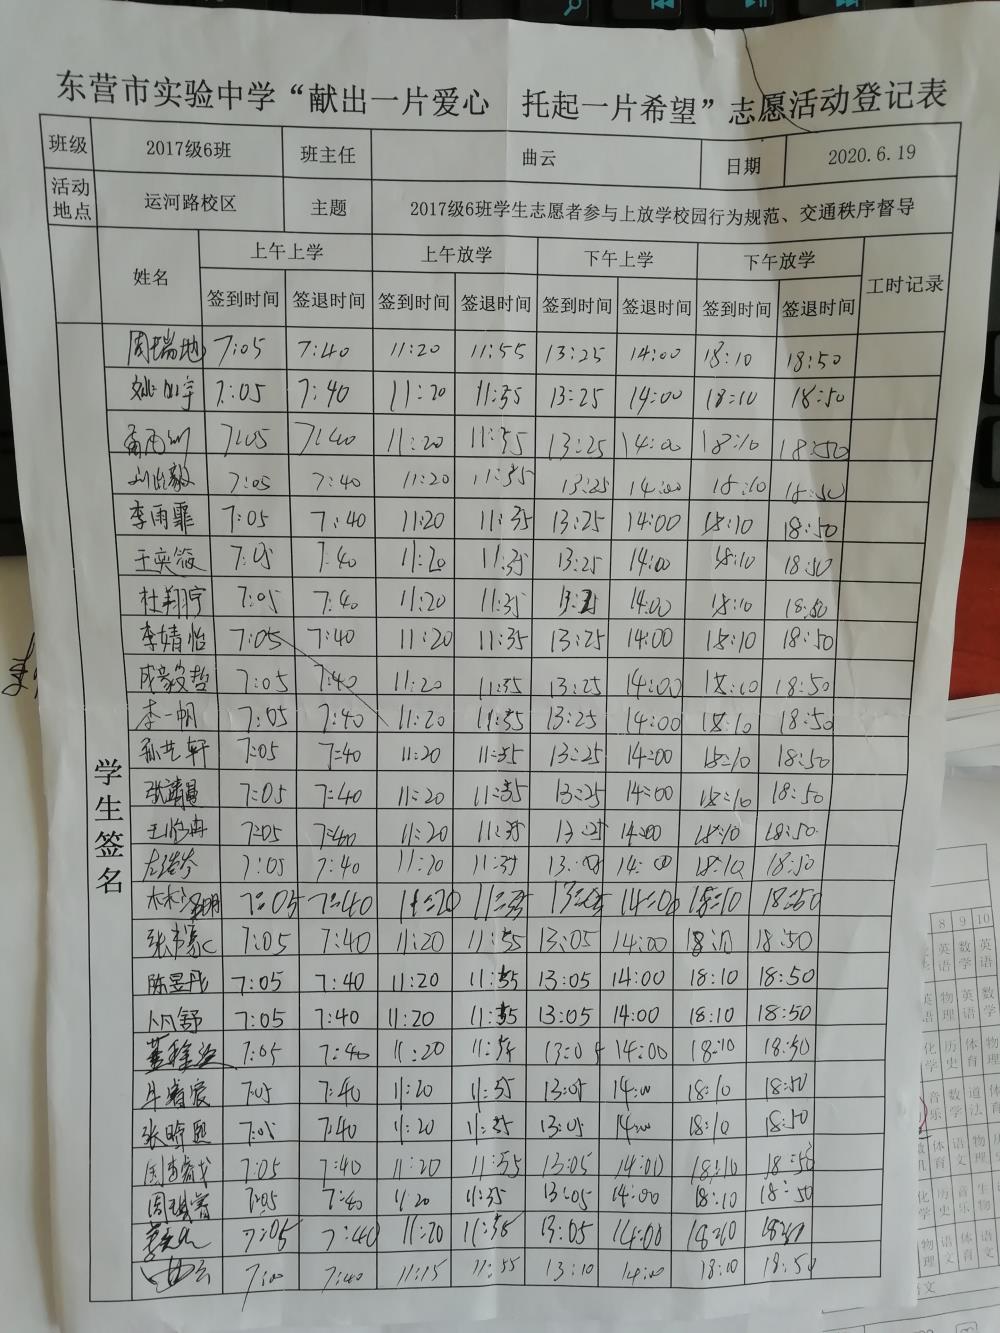 东营市实验中学“献出一片爱心 托起一片希望”志愿活动登记表
班级 2017级6班 班主任 曲云 日期 2020.6.19
活动地点 运河路校区 主题 2017级6班学生志愿者参与上放学校园行为规范、交通秩序督导
姓名 上午上学 上午放学 下午上学 下午放学 工时记录
签到时间 签退时间 签到时间 签退时间 签到时间 签退时间 签到时间 签退时间
学生签名
周瑞地 7:05 7:40 11:20 11:55 13:25 14:00 18:10 18:50
7:05 7:40 11:20 11:35 13:25 14:00 18:10 18:50
7:05 7:40 11:20 11:35 13:25 14:00 18:10 18:50
7:05 7:40 11:20 11:35 13:25 14:00 18:10 18:50
李雨霏 7:05 7:40 11:20 11:35 13:25 14:00 18:10 18:50
王奕筱 7:05 7:40 11:20 11:35 13:25 14:00 18:10 18:50
杜翔宇 7:05 7:40 11:20 11:35 13:25 14:00 18:10 18:50
李婧怡 7:05 7:40 11:20 11:35 13:25 14:00 18:10 18:50
成毅哲 7:05 7:40 11:20 11:35 13:25 14:00 18:10 18:50
李一帆 7:05 7:40 11:20 11:35 13:25 14:00 18:10 18:50
孙艺轩 7:05 7:40 11:20 11:35 13:25 14:00 18:10 18:50
7:05 7:40 11:20 11:35 13:25 14:00 18:10 18:50
王怡冉 7:05 7:40 11:20 11:35 13:25 14:00 18:10 18:50
7:05 7:40 11:20 11:35 14:00 18:10 18:50
7:05 7:40 11:20 14:00 18:10 18:50
7:05 7:40 11:20 11:55 13:05 14:00 18:10 18:50
陈昱彤 7:05 7:40 11:20 11:35 13:05 14:00 18:10 18:50
7:05 7:40 11:20 11:35 13:05 14:00 18:10 18:50
7:05 7:40 11:20 13:05 14:00 18:10 18:50
7:05 7:40 11:20 11:35 13:05 14:00 18:10 18:50
7:05 7:40 11:20 11:35 13:05 14:00 18:10 18:50
7:05 7:40 11:20 11:35 13:05 14:00 18:10 18:50
7:05 7:40 11:20 11:35 13:05 14:00 18:10 18:50
7:05 7:40 11:20 13:05 14:00 18:10
曲云 7:00 7:40 11:15 11:55 13:10 14:00 18:10 18:50
8 9 10